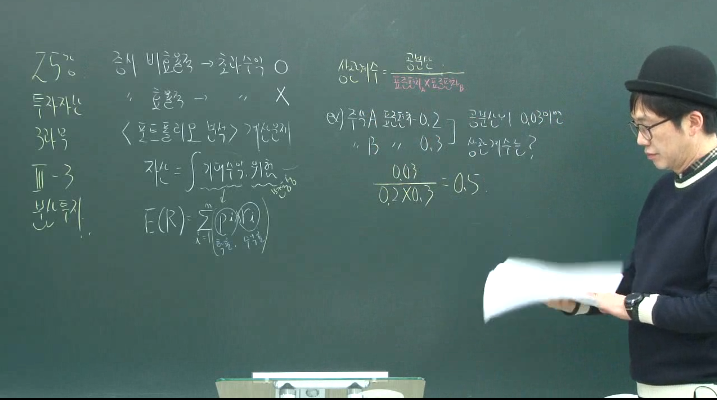 25강
투자자산
3과목
Ⅲ-3
분산투자
증시 비효율적 → 초과수익 O
〃 효율적 → 〃 X
<포트폴리오 분석> 계산문제
자산 = ∫ 기대수익, 위험
E(R) = Σ (pi)(ri)
i=1
(확률, 수익률)
상관계수 = 공분산
표준편차A X 표준편차B
ex) 주식A 표준편차 0.2
공분산이 0.03이면
〃 B 〃 0.3
상관계수는?
0.03
0.2X0.3 = 0.5